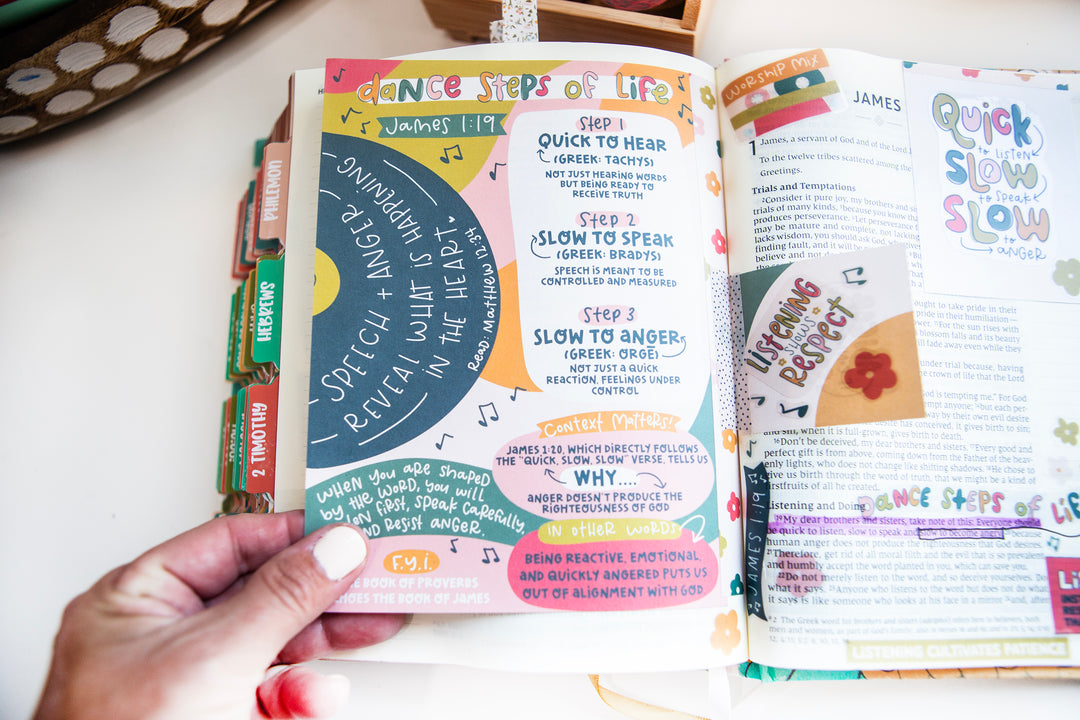 PHILEMON
HEBREWS
2 TIMOTHY
dance Steps of Life
James 1:19
SPEECH + ANGER
REVEAL WHAT IS HAPPENING
IN THE HEART.
Read: Matthew 12:34
Step 1
QUICK TO HEAR
(GREEK: TACHYS)
NOT JUST HEARING WORDS
BUT BEING READY TO
RECEIVE TRUTH
Step 2
SLOW TO SPEAK
(GREEK: BRADYS)
SPEECH IS MEANT TO BE
CONTROLLED AND MEASURED
Step 3
SLOW TO ANGER
(GREEK: ORGE)
NOT JUST A QUICK
REACTION, FEELINGS UNDER
CONTROL
Context Matters!
JAMES 1:20, WHICH DIRECTLY FOLLOWS
THE "QUICK, SLOW, SLOW" VERSE, TELLS US
WHY....
ANGER DOESN'T PRODUCE THE
RIGHTEOUSNESS OF GOD
When you are shaped
by the word, you will
first, speak carefully,
resist anger.
IN OTHER WORDS
BEING REACTIVE, EMOTIONAL,
AND QUICKLY ANGERED PUTS US
OUT OF ALIGNMENT WITH GOD
F.Y.I.
BOOK OF PROVERBS
THE BOOK OF JAMES
WORSHIP MIX
JAMES
1 James, a servant of God and of the Lord
To the twelve tribes scattered among the
Greetings.
Trials and Temptations
2 Consider it pure joy, my brothers and
trials of many kinds, 3 because you know
produces perseverance. 4 Let perseverance
may be mature and complete, not lacking
lacks wisdom, you should ask God
finding fault, and it will be
believe and not
Quick
to listen
SLOW
to speak
SLOW
to anGER
Listening
SHOWS
RESPECT
ought to take pride in their
pride in their humiliation—
For the sun rises with
blossom falls and its beauty
will fade away even while they
under trial because, having
crown of life that the Lord
God is tempting me." For God
tempt anyone; 14 but each per-
away by their own evil desire
desire has conceived, it gives birth
and sin, when it is full-grown, gives birth to death.
16 Don't be deceived, my dear brothers and sisters. 17 Every good and
perfect gift is from above, coming down from the Father of the heav-
enly lights, who does not change like shifting shadows. 18 He chose to
give us birth through the word of truth, that we might be a kind of
firstfruits of all he created.
Listening and Doing
Dance Steps of Life
19 My dear brothers and sisters, take note of this: Everyone should
be quick to listen, slow to speak and slow to become angry, 20 because
human anger does not produce the righteousness that God
21 Therefore, get rid of all moral filth and the evil that is so prevalent
and humbly accept the word planted in you, which can save you.
22 Do not merely listen to the word, and so deceive yourselves. Do
what it says. 23 Anyone who listens to the word but does not do what
it says is like someone who looks at his face in a mirror 24 and, after
JAMES 1:19
LISTENING CULTIVATES PATIENCE